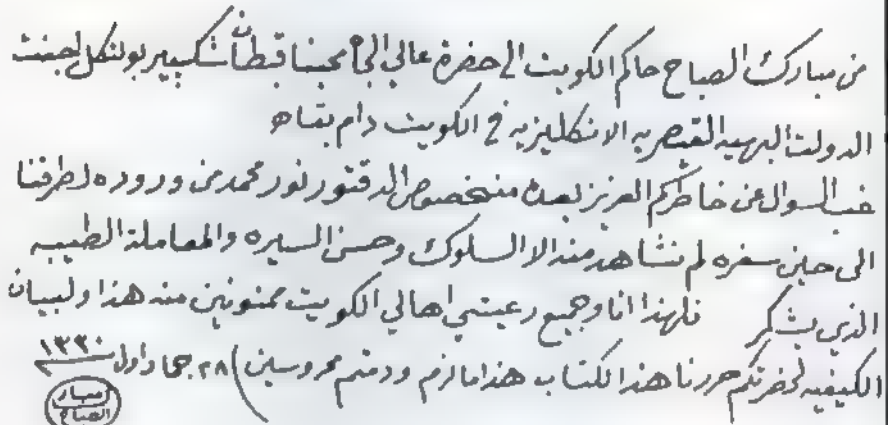 من مبارك الصباح حاكم الكويت الى حضرة عالي الجاه محبنا قبطان شكسبير بولتكل اجنت
الدولت البهيه القيصريه الانكليزيه في الكويت دام بقاه
غب السوال عن خاطركم العزيز بعده منخصوص الدقتور نور محمد من وروده لطرفنا
الى حين سفره لم نشاهد منه الا السلوك وحسن السيره والمعاملة الطيبه
الذي يشكر فلهذا انا وجميع رعيتي اهالي الكويت ممنونين منه هذا ولبيان
الكيفيه لحضرتكم حررنا هذا الكتاب هذا مالزم ودمتم محروسين ) ٢٨ جما واول ١٣٣٠
مبارك
الصباح